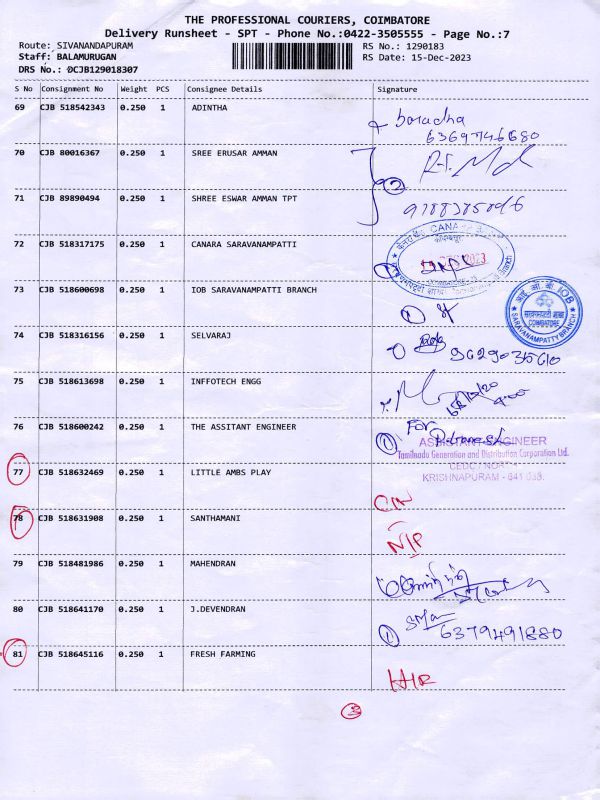 THE PROFESSIONAL COURIERS, COIMBATORE
Delivery Runsheet - SPT - Phone No.:0422-3505555 - Page No.:7
Route: SIVANANDAPURAM
RS No.: 1290183
Staff: BALAMURUGAN
RS Date: 15-Dec-2023
DRS No.: DCJB129018307
S No Consignment No Weight PCS Consignee Details Signature
69 CJB 518542343 0.250 1 ADINTHA
70 CJB 80016367 0.250 1 SREE ERUSAR AMMAN
71 CJB 89890494 0.250 1 SHREE ESWAR AMMAN TPT
72 CJB 518317175 0.250 1 CANARA SARAVANAMPATTI
73 CJB 518600698 0.250 1 IOB SARAVANAMPATTI BRANCH
IOB
COIMBATORE
SARAVANAMPATTY BRANCH
74 CJB 518316156 0.250 1 SELVARAJ
75 CJB 518613698 0.250 1 INFFOTECH ENGG
76 CJB 518600242 0.250 1 THE ASSITANT ENGINEER
For
ASSISTANT ENGINEER
Tamilnadu Generation and Distribution Corporation Ltd.
KRISHNAPURAM
77 CJB 518632469 0.250 1 LITTLE AMBS PLAY
78 CJB 518631908 0.250 1 SANTHAMANI
79 CJB 518481986 0.250 1 MAHENDRAN
80 CJB 518641170 0.250 1 J.DEVENDRAN
6379491880
81 CJB 518645116 0.250 1 FRESH FARMING
3